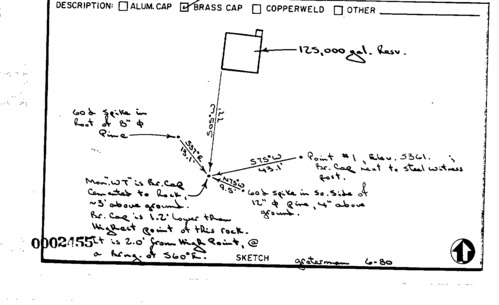 DESCRIPTION: ☐ ALUM. CAP ☑ BRASS CAP ☐ COPPERWELD ☐ OTHER
125,000 gal. Resv.
60d Spike in
Root of 8" ф
Pine
S57°E
13.1'
S05°W
77'
S75°W
43.1'
Point #1, Elev. 5361.
Br. Cap next to steel witness
post.
N75°W
9.5'
60d spike in So. Side of
12" ф Pine, 4" above
ground.
Mon. "WT" is Br. Cap
Cemented to Rock,
~3' above ground.
Br. Cap is 1.2' lower than
Highest point of this rock.
It is 2.0' from High Point, @
a bring. of S60°E.
0002455
SKETCH
6-80